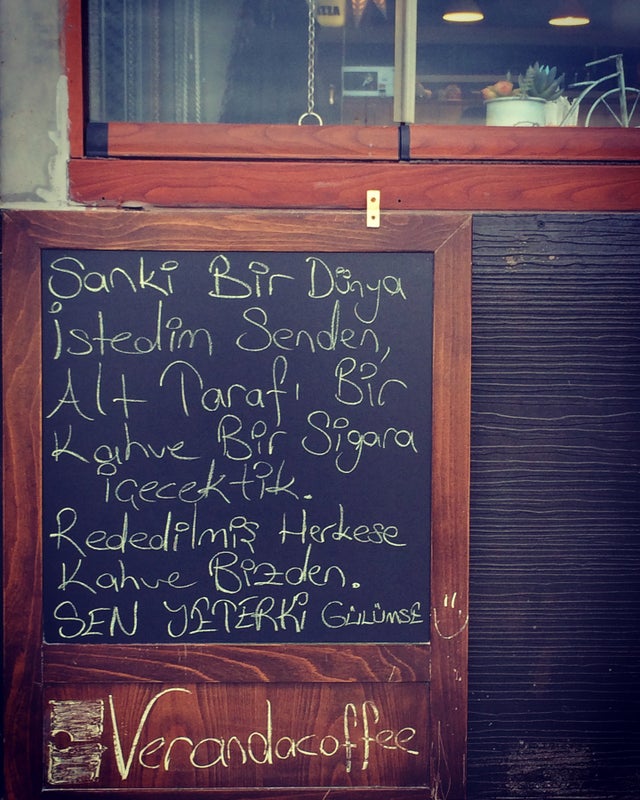 Sanki Bir Dünya
İstedim Senden,
Alt Tarafı Bir
Kahve Bir Sigara
içecektik.
Rededilmiş Herkese
Kahve Bizden.
SEN YETERKİ GÜLÜMSE
Verandacoffee